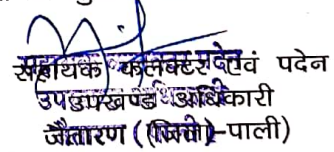 सहायक कलक्टर एवं पदेन
उपखण्ड अधिकारी
जैतारण (जिला)-पाली)